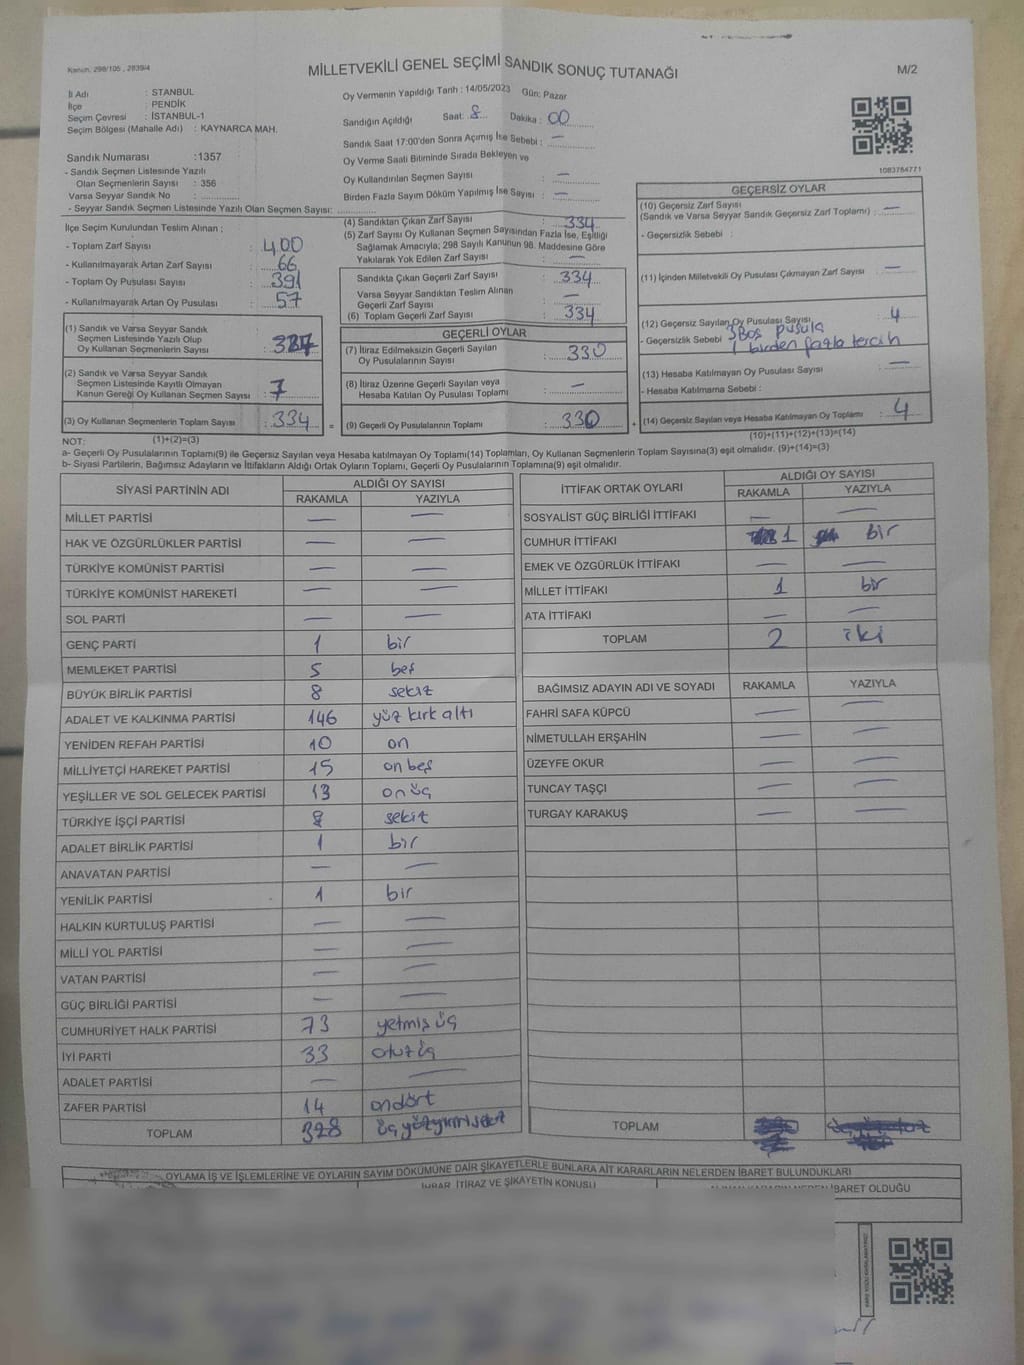 Kanun, 298/105 , 2839/4
MİLLETVEKİLİ GENEL SEÇİMİ SANDIK SONUÇ TUTANAĞI
M/2
İl Adı : STANBUL
İlçe : PENDİK
Seçim Çevresi : İSTANBUL-1
Seçim Bölgesi (Mahalle Adı) : KAYNARCA MAH.
Oy Vermenin Yapıldığı Tarih : 14/05/2023 Gün: Pazar
Sandığın Açıldığı Saat: 8 Dakika : 00
Sandık Saat 17:00'den Sonra Açımış İse Sebebi : —
Oy Verme Saati Bitiminde Sırada Bekleyen ve
Oy Kullandırılan Seçmen Sayısı : —
Birden Fazla Sayım Döküm Yapılmış İse Sayısı : —
1083764771
Sandık Numarası :1357
- Sandık Seçmen Listesinde Yazılı
Olan Seçmenlerin Sayısı : 356
Varsa Seyyar Sandık No :
- Seyyar Sandık Seçmen Listesinde Yazılı Olan Seçmen Sayısı:
İlçe Seçim Kurulundan Teslim Alınan ;
- Toplam Zarf Sayısı : 400
- Kullanılmayarak Artan Zarf Sayısı : 66
- Toplam Oy Pusulası : 391
- Kullanılmayarak Artan Oy Pusulası : 57
(1) Sandık ve Varsa Seyyar Sandık
Seçmen Listesinde Yazılı Olup
Oy Kullanan Seçmenlerin Sayısı : 327
(2) Sandık ve Varsa Seyyar Sandık
Seçmen Listesinde Kayıtlı Olmayan
Kanun Gereği Oy Kullanan Seçmen Sayısı : 7
(3) Oy Kullanan Seçmenlerin Toplam Sayısı : 334 =
(1)+(2)=(3)
(4) Sandıktan Çıkan Zarf Sayısı : 334
(5) Zarf Sayısı Oy Kullanan Seçmen Sayısından Fazla İse, Eşitliği
Sağlamak Amacıyla; 298 Sayılı Kanunun 98. Maddesine Göre
Yakılarak Yok Edilen Zarf Sayısı : —
Sandıkta Çıkan Geçerli Zarf Sayısı : 334
Varsa Seyyar Sandıktan Teslim Alınan
Geçerli Zarf Sayısı : —
(6) Toplam Geçerli Zarf Sayısı : 334
GEÇERLİ OYLAR
(7) İtiraz Edilmeksizin Geçerli Sayılan
Oy Pusulalarının Sayısı : 330
(8) İtiraz Üzerine Geçerli Sayılan veya
Hesaba Katılan Oy Pusulası Toplamı : —
(9) Geçerli Oy Pusulalarının Toplamı : 330 +
GEÇERSİZ OYLAR
(10) Geçersiz Zarf Sayısı
(Sandık ve Varsa Seyyar Sandık Geçersiz Zarf Toplamı) : —
- Geçersizlik Sebebi :
(11) İçinden Milletvekili Oy Pusulası Çıkmayan Zarf Sayısı : —
(12) Geçersiz Sayılan Oy Pusulası Sayısı : 4
- Geçersizlik Sebebi 3 Boş pusula
1 birden fazla tercih
(13) Hesaba Katılmayan Oy Pusulası Sayısı : —
- Hesaba Katılmama Sebebi :
(14) Geçersiz Sayılan veya Hesaba Katılmayan Oy Toplamı : 4
(10)+(11)+(12)+(13)=(14)
NOT:
a- Geçerli Oy Pusulalarının Toplamı(9) ile Geçersiz Sayılan veya Hesaba katılmayan Oy Toplamı(14) Toplamları, Oy Kullanan Seçmenlerin Toplam Sayısına(3) eşit olmalıdır. (9)+(14)=(3)
b- Siyasi Partilerin, Bağımsız Adayların ve İttifakların Aldığı Ortak Oyların Toplamı, Geçerli Oy Pusulalarının Toplamına(9) eşit olmalıdır.
SİYASİ PARTİNİN ADI ALDIĞI OY SAYISI
RAKAMLA YAZIYLA
MİLLET PARTİSİ — —
HAK VE ÖZGÜRLÜKLER PARTİSİ — —
TÜRKİYE KOMÜNİST PARTİSİ — —
TÜRKİYE KOMÜNİST HAREKETİ — —
SOL PARTİ — —
GENÇ PARTİ 1 bir
MEMLEKET PARTİSİ 5 beş
BÜYÜK BİRLİK PARTİSİ 8 sekiz
ADALET VE KALKINMA PARTİSİ 146 yüz kırk altı
YENİDEN REFAH PARTİSİ 10 on
MİLLİYETÇİ HAREKET PARTİSİ 15 on beş
YEŞİLLER VE SOL GELECEK PARTİSİ 13 on üç
TÜRKİYE İŞÇİ PARTİSİ 8 sekiz
ADALET BİRLİK PARTİSİ 1 bir
ANAVATAN PARTİSİ — —
YENİLİK PARTİSİ 1 bir
HALKIN KURTULUŞ PARTİSİ — —
MİLLİ YOL PARTİSİ — —
VATAN PARTİSİ — —
GÜÇ BİRLİĞİ PARTİSİ — —
CUMHURİYET HALK PARTİSİ 73 yetmiş üç
İYİ PARTİ 33 otuz üç
ADALET PARTİSİ — —
ZAFER PARTİSİ 14 on dört
TOPLAM 328 üç yüz yirmi sekiz
İTTİFAK ORTAK OYLARI ALDIĞI OY SAYISI
RAKAMLA YAZIYLA
SOSYALİST GÜÇ BİRLİĞİ İTTİFAKI — —
CUMHUR İTTİFAKI 1 bir
EMEK VE ÖZGÜRLÜK İTTİFAKI — —
MİLLET İTTİFAKI 1 bir
ATA İTTİFAKI — —
TOPLAM 2 iki
BAĞIMSIZ ADAYIN ADI VE SOYADI RAKAMLA YAZIYLA
FAHRİ SAFA KÜPCÜ — —
NİMETULLAH ERŞAHİN — —
ÜZEYFE OKUR — —
TUNCAY TAŞÇI — —
TURGAY KARAKUŞ — —
TOPLAM
OYLAMA İŞ VE İŞLEMLERİNE VE OYLARIN SAYIM DÖKÜMÜNE DAİR ŞİKAYETLERLE BUNLARA AİT KARARLARIN NELERDEN İBARET BULUNDUKLARI
İHBAR, İTİRAZ VE ŞİKAYETİN KONUSU
İBARET OLDUĞU